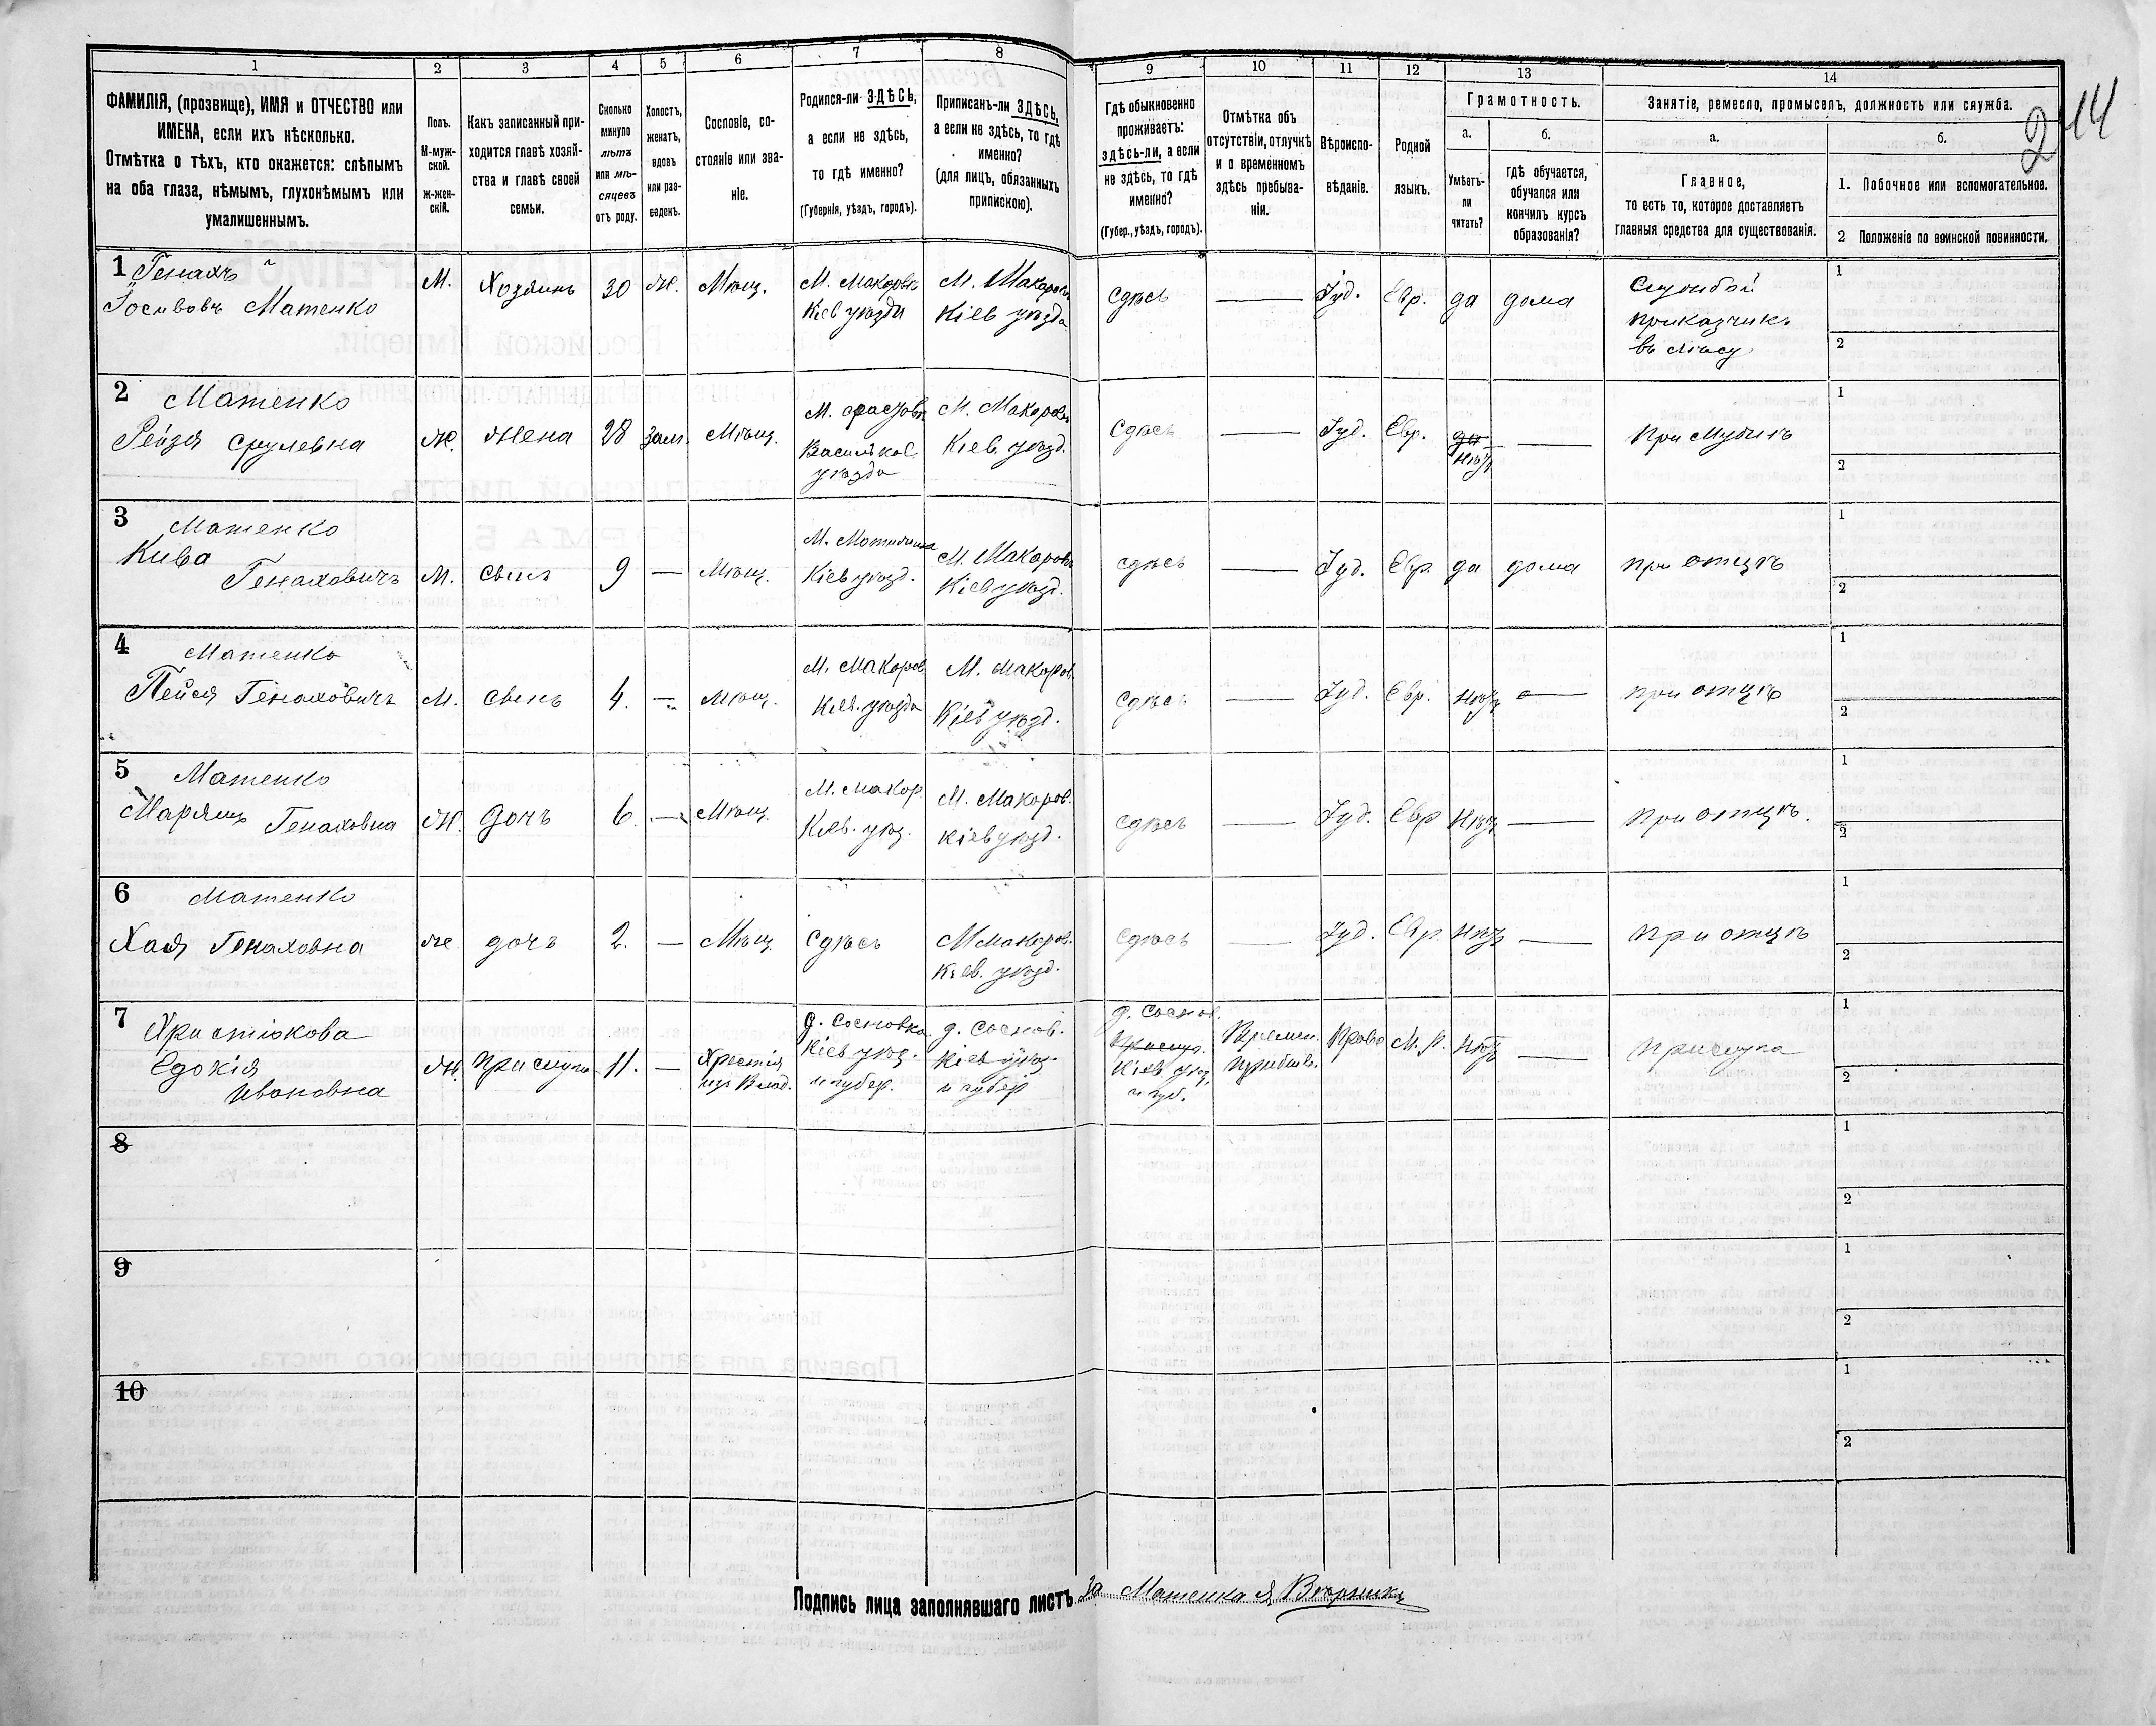 2 14
1 2 3 4 5 6 7 8 9 10 11 12 13 14
ФАМИЛІЯ, (прозвище), ИМЯ и ОТЧЕСТВО или
ИМЕНА, если ихъ нѣсколько.
Отмѣтка о тѣхъ, кто окажется: слѣпымъ
на оба глаза, нѣмымъ, глухонѣмымъ или
умалишеннымъ.
Полъ.
М-муж-
ской.
ж-жен-
скій.
Какъ записанный при-
ходится главѣ хозяй-
ства и главѣ своей
семьи.
Сколько
минуло
лѣтъ
или мѣ-
сяцевъ
отъ роду.
Холостъ,
женатъ,
вдовъ
или раз-
веденъ.
Сословіе, со-
стояніе или зва-
ніе.
Родился-ли ЗДѢСЬ,
а если не здѣсь,
то гдѣ именно?
(Губернія, уѣздъ, городъ).
Приписанъ-ли ЗДѢСЬ,
а если не здѣсь, то гдѣ
именно?
(для лицъ, обязанныхъ
припискою).
Гдѣ обыкновенно
проживаетъ:
здѣсь-ли, а если
не здѣсь, то гдѣ
именно?
(Губер., уѣздъ, городъ).
Отмѣтка объ
отсутствіи, отлучкѣ
и о временномъ
здѣсь пребыва-
ніи.
Вѣроиспо-
вѣданіе.
Родной
языкъ.
Грамотность.
а.
Умѣетъ-
ли
читать?
б.
гдѣ обучается,
обучался или
кончилъ курсъ
образованія?
Занятіе, ремесло, промыселъ, должность или служба.
а.
Главное,
то есть то, которое доставляетъ
главныя средства для существованія.
б.
1. Побочное или вспомогательное.
2 Положеніе по воинской повинности.
1 Генахъ
Іосивовъ Матенко
М. Хозяинъ 30 Ж. Мѣщ.
М. Макоровъ
Кіев уѣзда
М. Макоровъ
Кіев уѣзда
Сдѣсь — Іуд. Евр. да дома
Службой
приказчикъ
въ лѣсу
1
2
2 Матенко
Рейзя Срулевна
Ж. Жена 28 Зам. Мѣщ.
М. Фастовъ
Васильков.
уѣзда
М. Макоровъ
Кіев. уѣзд.
Сдѣсь — Іуд. Евр. да
нѣтъ —
При Мужѣ
1
2
3 Матенко
Кива
Генаховичъ
М. Свинъ 9 — Мѣщ.
М. Мотижина
Кіев уѣзд.
М. Макоровъ
Кіев уѣзд.
Сдѣсь Іуд. Евр. да дома при отцѣ
1
2
4 Матенко
Пейся Генаховичъ
М. Свинъ 4. — Мѣщ.
М. Макоров.
Кіев. уѣзда
М. Макоров.
Кіев уѣзд.
Сдѣсь — Іуд. Евр. нѣтъ — при отцѣ
1
2
5 Матенко
Марямъ Генаховна
Ж. Дочъ 6. — Мѣщ.
М. Макор.
Кіев. уѣз.
М. Макоров.
Кіев уѣзд.
Сдѣсь — Іуд. Евр нѣтъ — при отцѣ.
1
2
6 Матенко
Хая Генаховна
Ж. дочъ 2. — Мѣщ. Сдѣсь
М Макоров.
Кіев. уѣзд.
Сдѣсь — Іуд. Евр. нѣтъ — при отцѣ
1
2
7 Христюкова
Едокія
Ивоновна
Ж. прислуга 11. —
Хрестія
изъ Влад.
д. Сосновка
Кіев уѣз.
и губер.
д. Соснов.
Кіев уѣз.
и губер
д. Соснов.
Кіев уѣз.
и губ.
Времен.
прибыв.
Право М. Р. нѣтъ — прислуга
1
2
8
1
2
9
1
2
10
1
2
Подпись лица заполнявшаго листъ За Матенко я